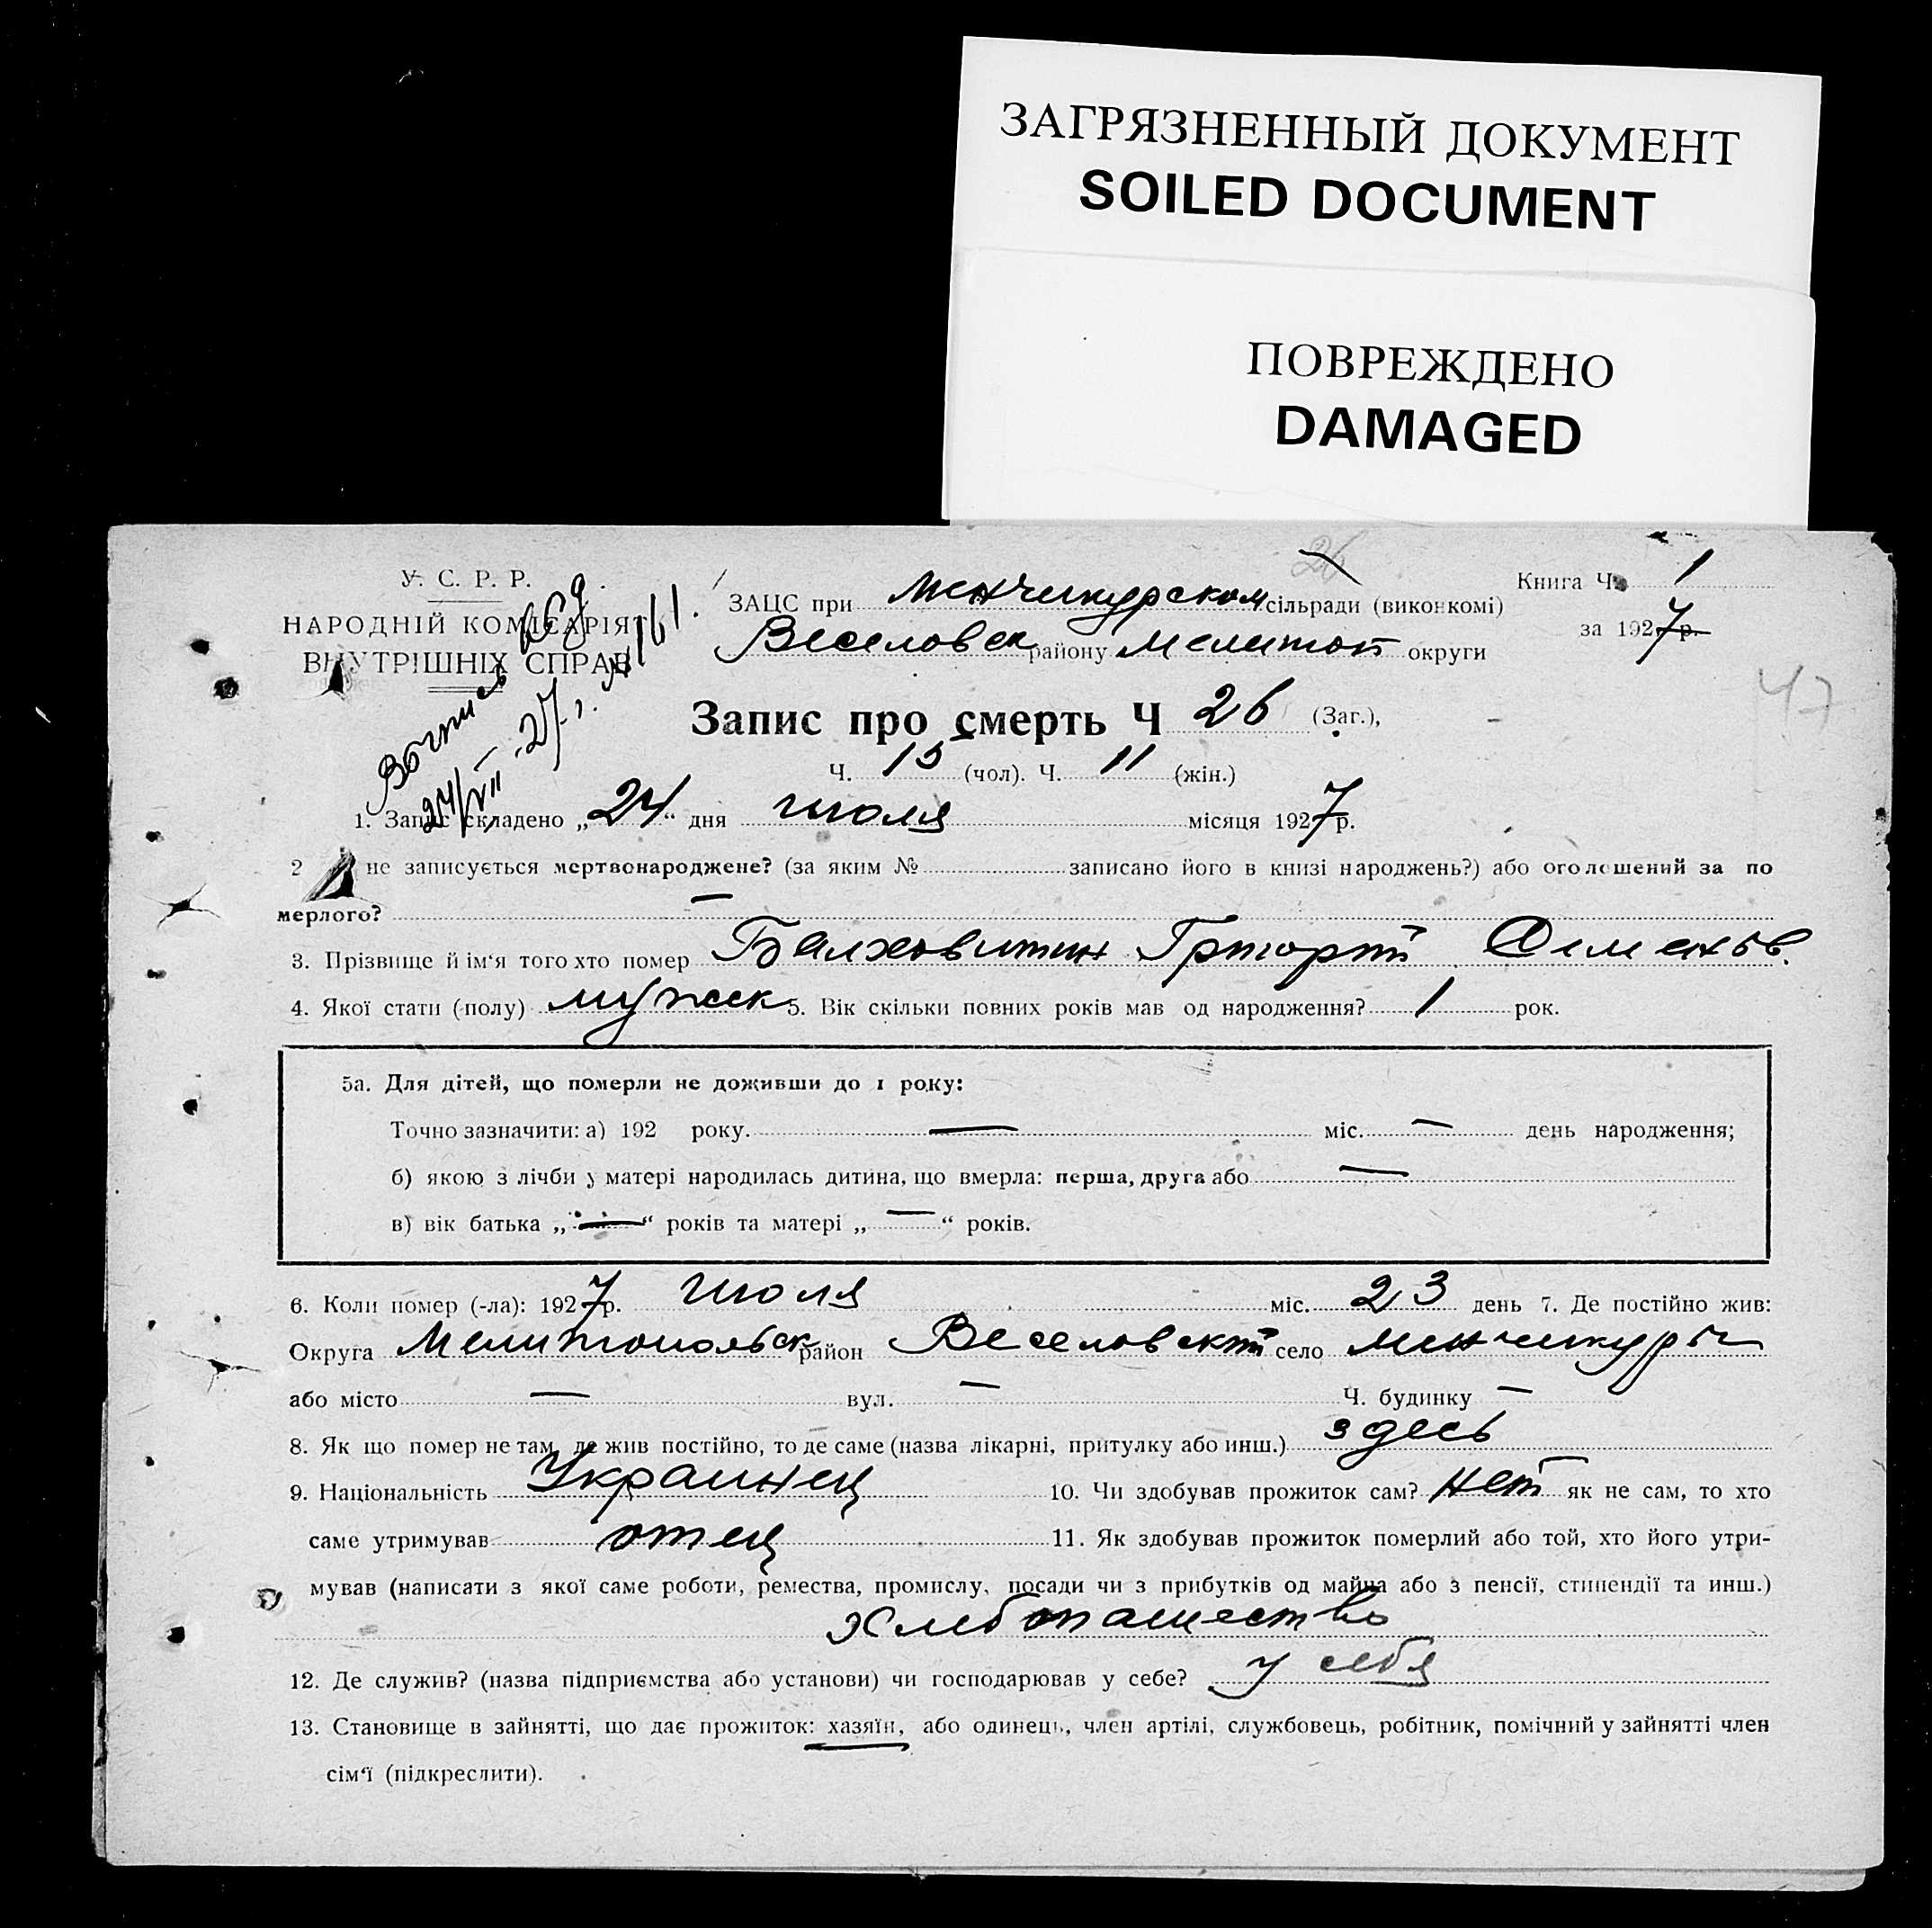 ЗАГРЯЗНЕННЫЙ ДОКУМЕНТ
SOILED DOCUMENT
ПОВРЕЖДЕНО
DAMAGED
У. С. Р. Р.
НАРОДНІЙ КОМІСАРІЯТ
ВНУТРІШНІХ СПРАВ
24/VII-27 г. № 161.
26
ЗАЦС при Менчикурском сільради (виконкомі)
Веселовск району Мелитоп округи
Книга Ч. 1
за 1927 р.
47
Запис про смерть Ч 26 (Заг.),
Ч. 15 (чол). Ч. 11 (жін.)
1. Запис складено „24“ дня июля місяця 1927 р.
2 не записується мертвонароджене? (за яким № записано його в книзі народжень?) або оголошений за по
мерлого? —
3. Прізвище й ім‘я того хто помер Балховитин Григорий Семенов.
4. Якої статі (полу) мужск 5. Вік скільки повних років мав од народження? 1 рок.
5а. Для дітей, що померли не доживши до 1 року:
Точно зазначити: а) 192 року. — міс. — день народження;
б) якою з лічби у матері народилась дитина, що вмерла: перша, друга або —
в) вік батька „—“ років та матері „—“ років.
6. Коли помер (-ла): 1927 р. июля міс. 23 день 7. Де постійно жив:
Округа Мелитопольск район Веселовский село Минчикуры
або місто — вул. — Ч. будинку —
8. Як що помер не там, де жив постійно, то де саме (назва лікарні, притулку або инш.) здесь
9. Національність Украинец 10. Чи здобував прожиток сам? нет як не сам, то хто
саме утримував отец 11. Як здобував прожиток померлий або той, хто його утри-
мував (написати з якої саме роботи, ремества, промислу, посади чи з прибутків од майна або з пенсії, стипендії та инш.)
Хлебопашество
12. Де служив? (назва підприємства або установи) чи господарював у себе? у себя
13. Становище в зайнятті, що дає прожиток: хазяїн, або одинець, член артілі, службовець, робітник, помічний у зайнятті член
сім‘ї (підкреслити).